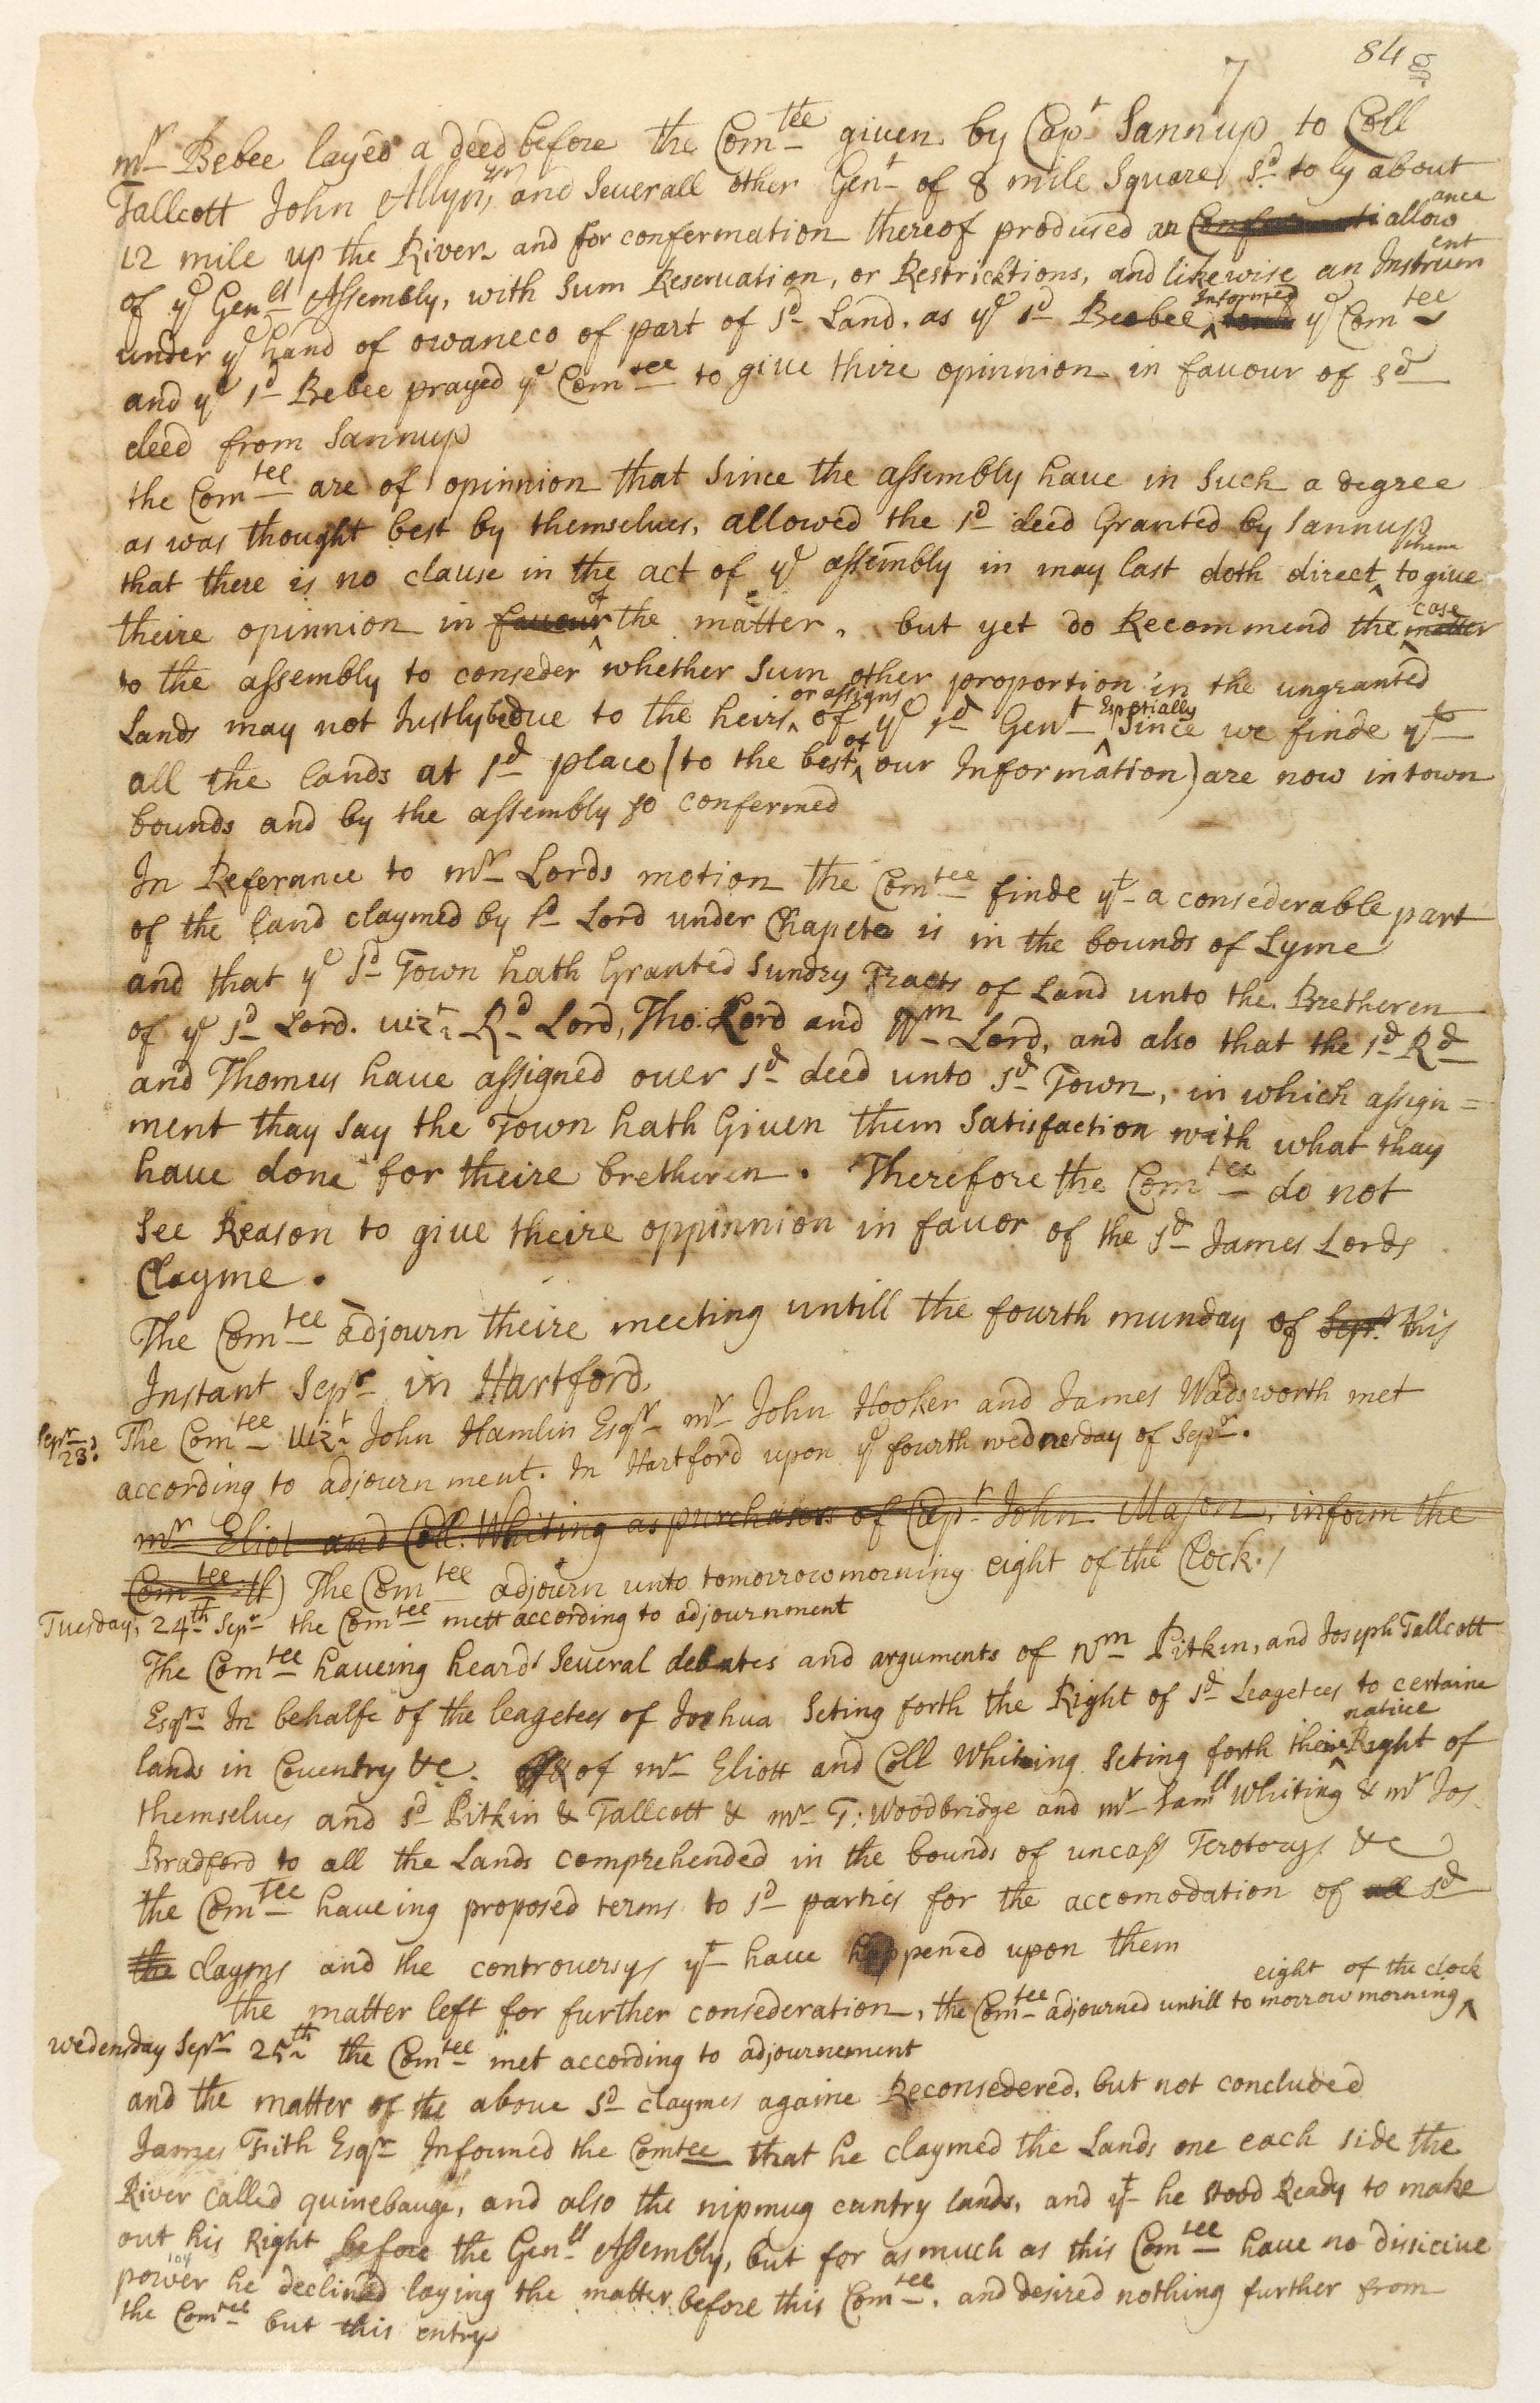 84
7
mr Bebee layed a deed before the Comtee given by Capt Sannup to Coll
Tallcott John Allyn, and Severall other Gent of 8 mile Square sd to ly about
12 mile up the River and for confermation thereof prodused an allowance
of ye Genell Assembly, with Sum Reservation, or Restricktions, and likewise an Instrument
under ye hand of owaneco of part of sd Land, as ye sd Beebee Informed ye Comtee
and ye sd Bebee prayed ye Comtee to give thire opinnion in favour of sd
deed from Sannup
the Comtee are of opinnion that Since the assembly have in Such a degree
as was thought best by themselves, allowed the sd deed Granted by Sannup
that there is no clause in the act of ye assembly in may last doth direct them to give
theire opinnion in favour of the matter, but yet do Recommend the case matter
to the assembly to conseder whether Sum other proportion in the ungranted
Lands may not Justly be due to the heirs or assigns of ye sd Gent Espetially Since we finde yt
all the lands at sd place (to the best of our Information) are now in town
bounds and by the assembly so confermed
In Referance to mr Lords motion the Comtee finde yt a considerable part
of the land claymed by sd Lord under Chapeto is in the bounds of Lyme
and that ye sd Town hath Granted Sundry Tracts of Land unto the Bretheren
of ye sd Lord. vizt Rd Lord, Tho: Lord and Wm Lord, and also that the sd Rd
and Thomus have assigned over sd deed unto sd Town, in which assign=
ment thay say the Town hath Given them Satisfaction with what thay
have done for theire bretheren. Therefore the Comtee do not
See Reason to give theire oppinnion in favor of the sd James Lords
Clayme.
The Comtee adjourn theire meeting untill the fourth munday of Sept. this
Instant Sepr in Hartford.
Sepr 23. The Comtee vizt John Hamlin Esqr mr John Hooker and James Wadsworth met
according to adjournment. In Hartford upon ye fourth wednesday of Sepr.
mr Eliot and Coll. Whiting as purchasers of Capt John Mason, inform the
Comtee The Comtee adjourn unto tomorrow morning eight of the Clock.
Tuesday, 24th Sepr the Comtee mett according to adjournment
The Comtee haveing heard Several debates and arguments of Wm Pitkin, and Joseph Tallcott
Esqrs In behalfe of the leagetees of Joshua Seting forth the Right of sd Leagetees to certaine
lands in Coventry &c. of mr Eliott and Coll Whiting Seting forth their native Right of
themselves and sd Pitkin & Tallcott & mr T: Woodbridge and mr Samll Whiting & mr Jos
Bradford to all the Lands comprehended in the bounds of uncass Terotorys &c
the Comtee haveing proposed terms to sd parties for the accomodation of all sd
the clayms and the controversys yt have happened upon them
the matter left for further consederation, the Comtee adjourned untill to morrow morning eight of the clock
wedensday Sepr 25th the Comtee met according to adjournement
and the matter of the above sd claymes againe Reconsedered, but not concluded
James Fitch Esqr Infoumed the Comtee that he claymed the Lands one each side the
River called quinebauge, and also the nipmug cuntry lands, and yt he stood Ready to make
out his Right before the Genll Assembly, but for as much as this Comtee have no disicive
power he declined laying the matter before this Comtee, and desired nothing further from
the Comtee but this entry